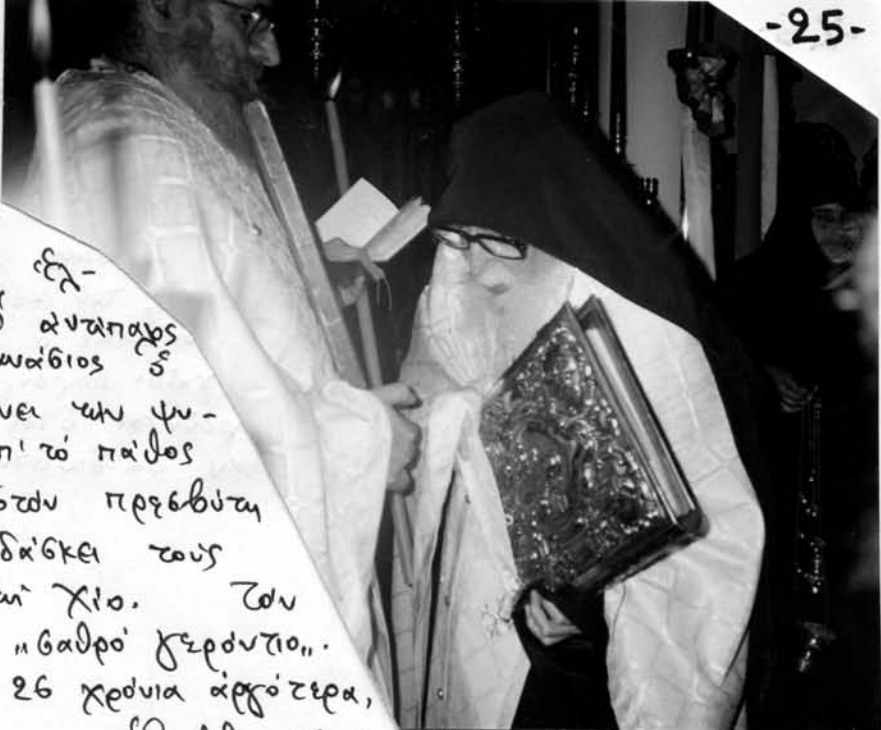 -25-
ἑλ-
ἀντίπαρος
νάσιος ξ
νει τὴν ψυ-
π' τό πάθος
στόν πρεσβύτη
δάσκει τούς
Χίο. Τόν
„σαθρό γερόντιο„.
26 χρόνια ἀργότερα,